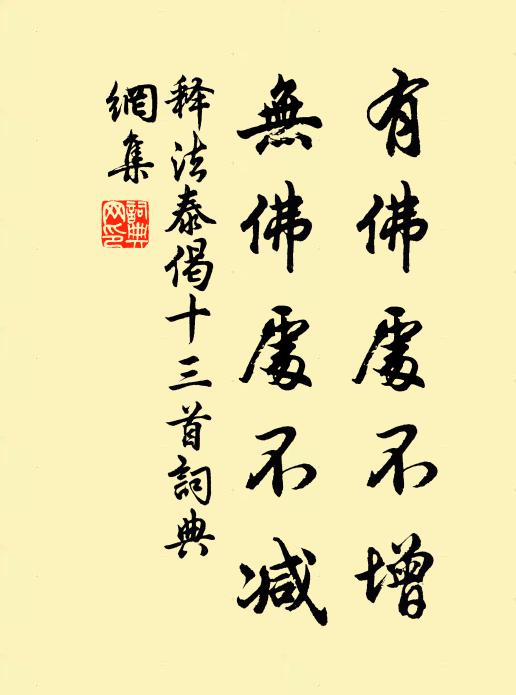 有佛處不增
無佛處不减
释法泰偈十三首詞典
網集
詞典網印